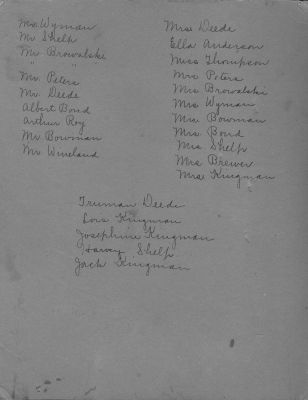 Mr. Wyman
Mr Shelp
Mr. Browalski
" "
Mr. Peters
Mr. Deeds
Albert Bond
Arthur Roy
Mr. Bowman
Mr Wineland
Mrs. Deeds
Ella Anderson
Miss Thompson
Mrs Peters
Mrs Browalski
Mrs Wyman
Mrs Bowman
Mrs. Bond
Mrs Shelp
Mrs Brewer
Mrs. Kingman
Truman Deeds
Lois Kingman
Josephine Kingman
Harvey Shelp
Jack Kingman